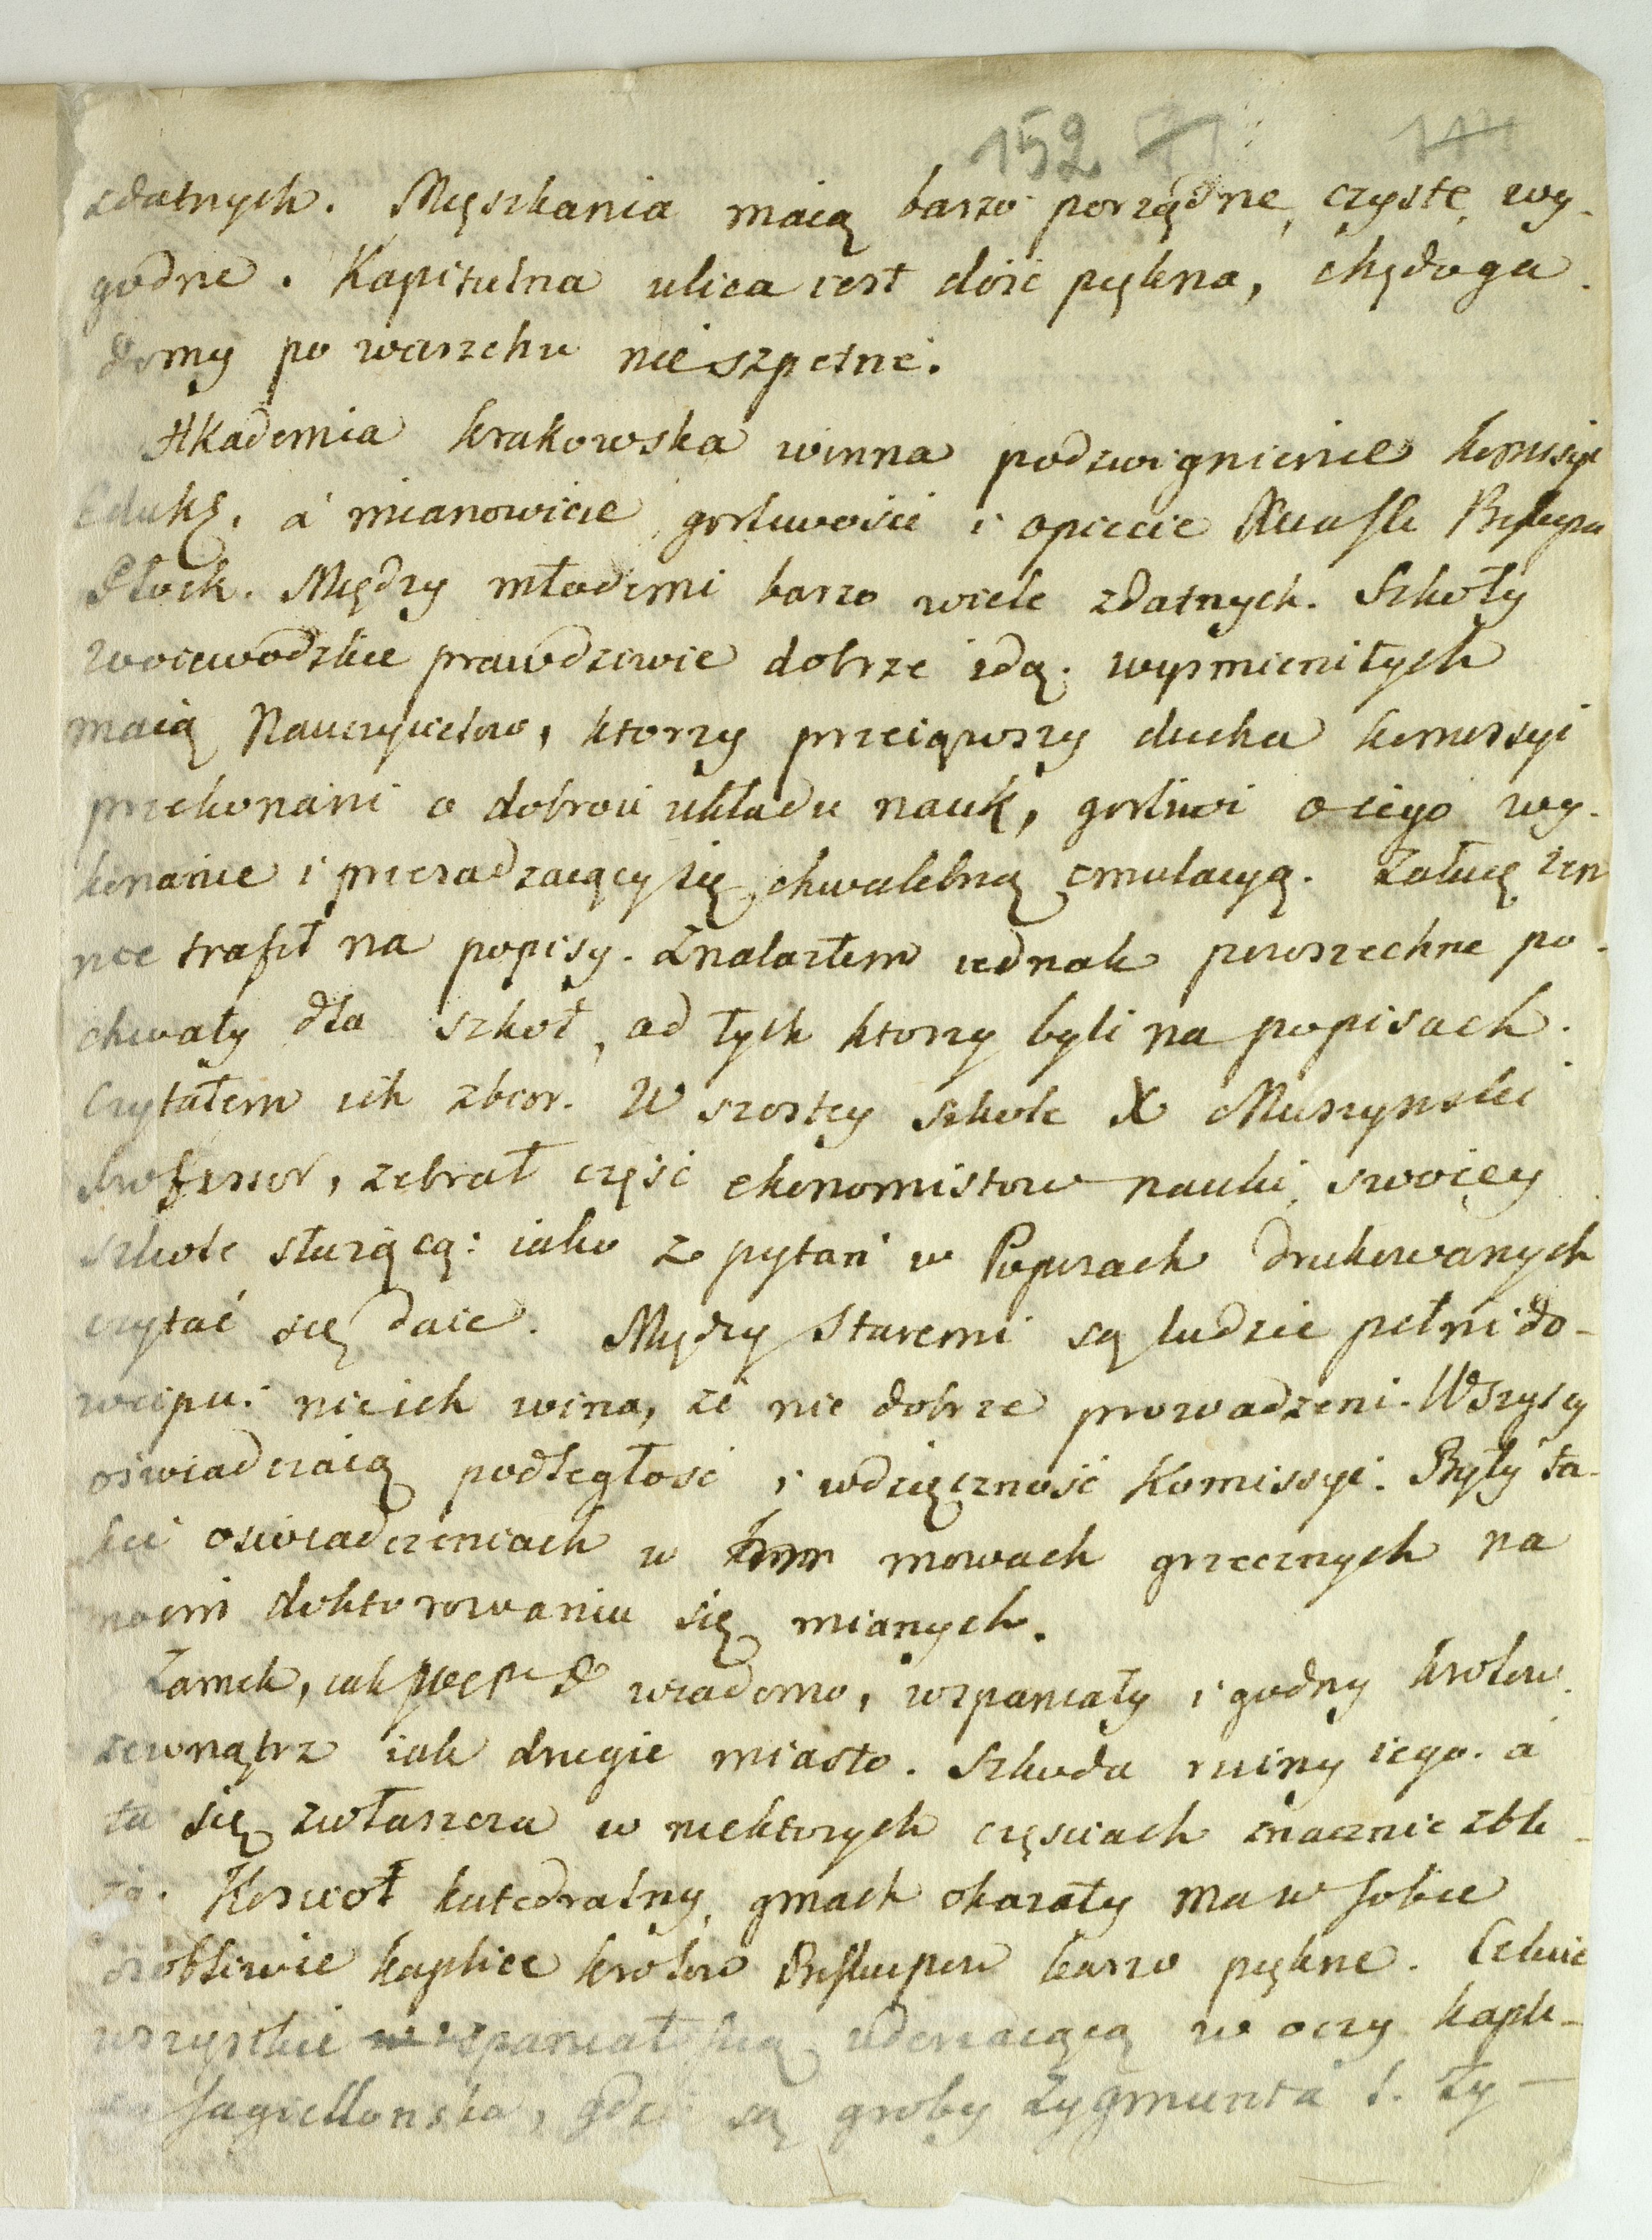 152
zdatnych. Męszkania maią barzo porządne, czyste, wy-
godne. Kapitulna ulica iest dość pękna, chędoga
domy po warzchu nie szpetne.
Akademia krakowska winna podzwignienie komisyi
Eduk. a mianowicie gorliwości i opiecie Biskupa
Płock. Między młodemi barzo wiele zdatnych. Szkoły
woiewodzkie prawdziwie dobrze idą. wysmienitych
maią Nauczycielow, ktorzy przeiąwszy ducha komissyi
przekonani o dobroci układu nauk, gorliwi o iego wy-
konanie i przesadzaiący się chwalebną emulacyą. Żałuię żem
nie trafił na popisy. Znalazłem iednak powszechne po-
chwały dla szkoł, od tych ktorzy byli na popisach.
Czytałem ich zbior. W szostey szkole X Muszynski
Professor, zebrał część ekonomistow nauki, swoiey
szkole służącą: iako z pytań w Popisach drukowanych
czytać się daie. Między Staremi są ludzie pełni do-
wcipu: nie ich wina, że nie dobrze prowadzeni. Wszyscy
oświadczaią podległość i wdzięczność Komissyi. Były ta-
kie oswiadczeniach w mowach grzecznych na
moim doktorowaniu się mianych.
Zamek, iak wiadomo, wspaniały i godny krolow.
zewnątrz iak drugie miasto. Szkoda ruiny iego. a
ta się zwłaszcza w niektorych częściach znacznie zbli-
ża. Kościoł katedralny, gmach okazały ma w sobie
osobliwie kaplice krolow Biskupow barzo piękne. Celuie
wszystkie wspaniałością uderzaiącą w oczy kapli-
ca Jagiellonska, gdzie są groby Zygmunta I. Zy-